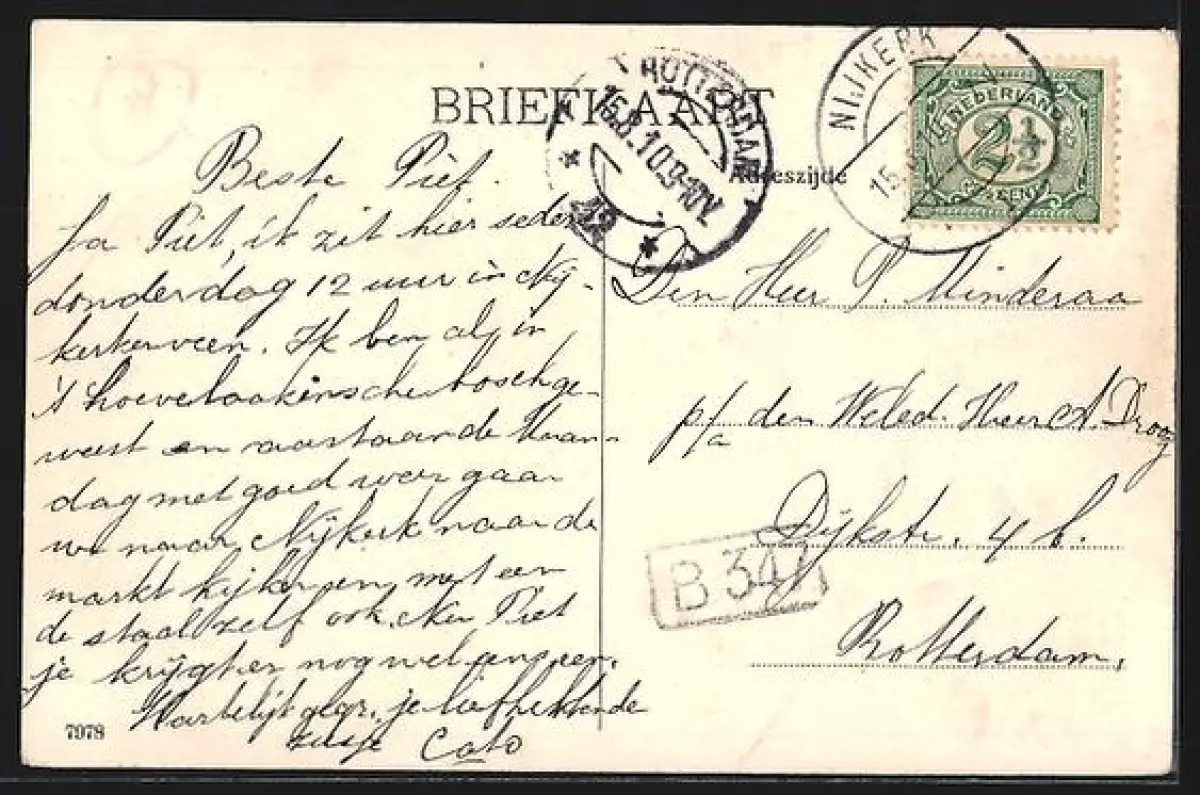 BRIEFKAART
Adreszijde
ROTTERDAM
15.8.10.9-10V.
42
NIJKERK
15.
NEDERLAND
2½
CENT
Beste Piet.
Ja Piet, ik zit hier seder
donderdag 12 uur in Nij-
kerkerveen. Ik ben als in
't hoevelaakensche bosch ge-
weest en aastaande Maan-
dag met goed weer gaan
we naar Nijkerk naar de
markt kijken en met een
de stad zelf ook. Nu Piet
je krijgt er nog wel een
Hartelijk gegr. je liefhebbende
zusje Cato
Den Heer P. Minderaa
p/a den Weled. Heer A. Droog
Dijkstr. 4 b.
B 344
Rotterdam.
7978